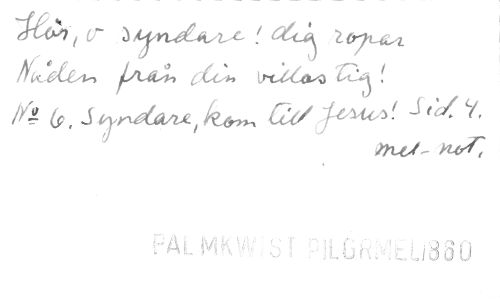 Hör, o syndare! dig ropar
Nåden från din villostig!
No 6. Syndare, kom till Jesus! Sid. 4.
mel-not.
PALMKWIST PILGRMEL 1880